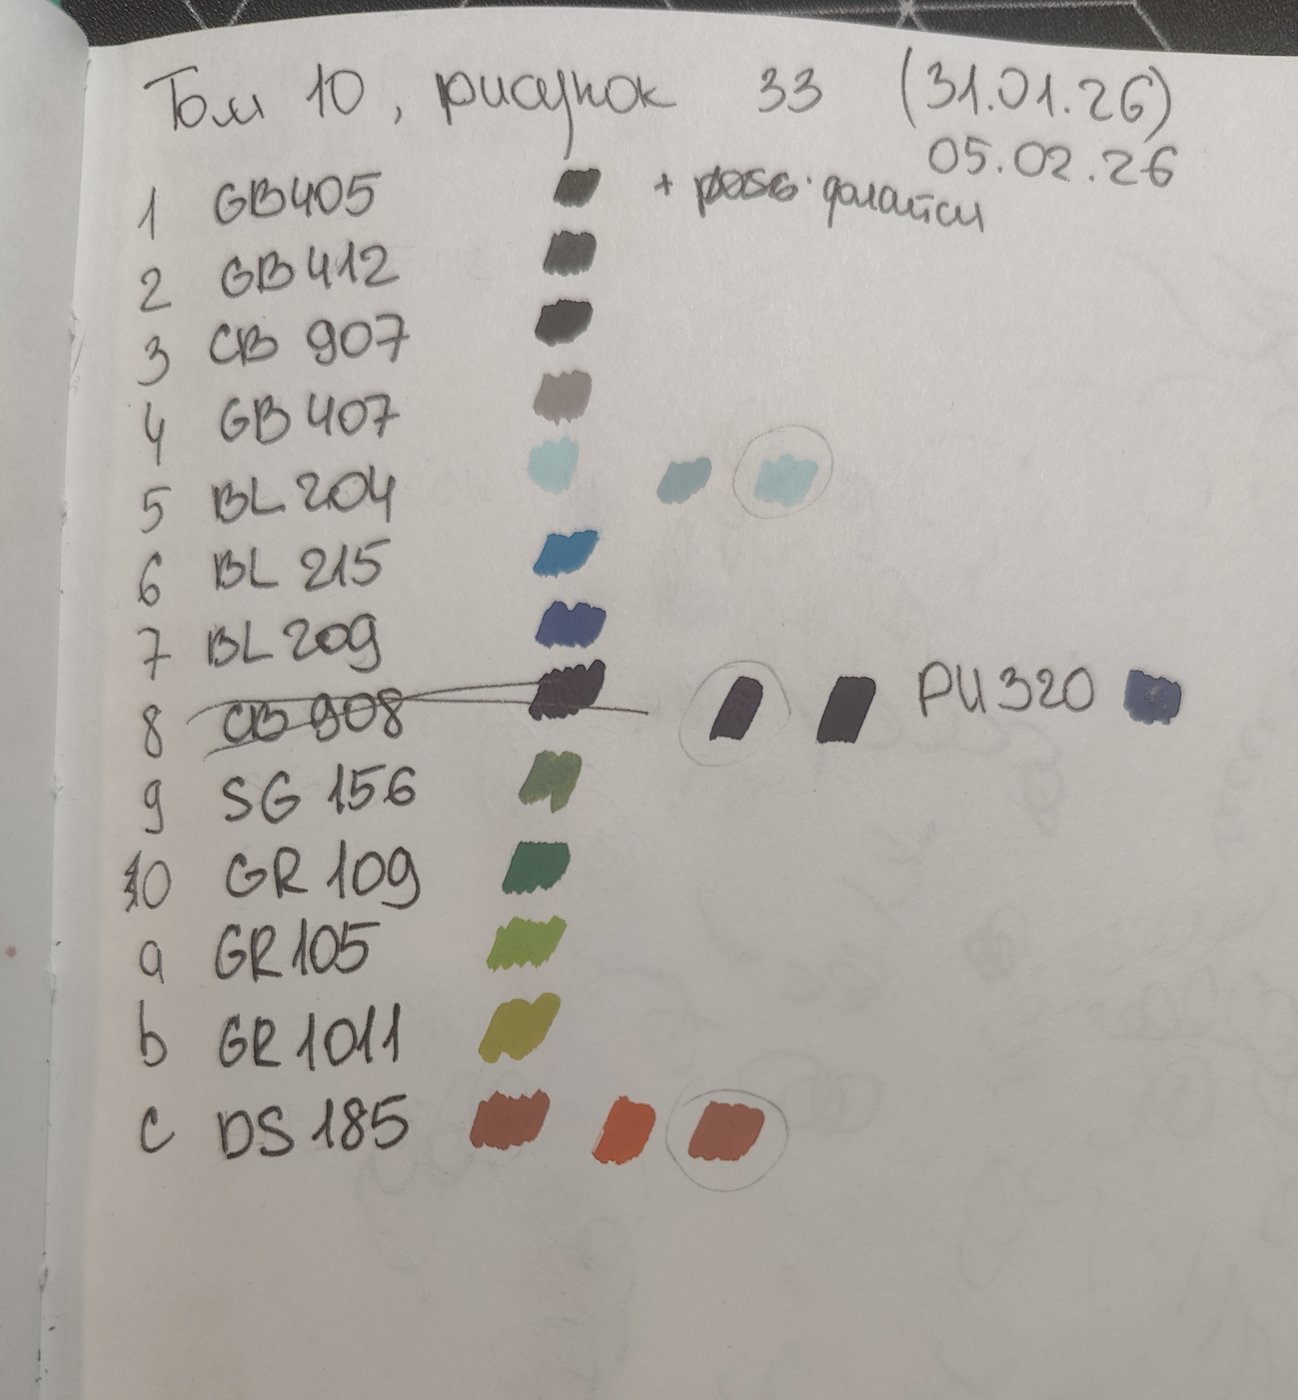 Том 10, рисунок 33 (31.01.26)
05.02.26
1 GB405 +
2 GB412
3 CB 907
4 GB407
5 BL204
6 BL 215
7 BL209
8 CB 908 PU320
9 SG 156
10 GR 109
a GR105
b GR1011
c DS 185